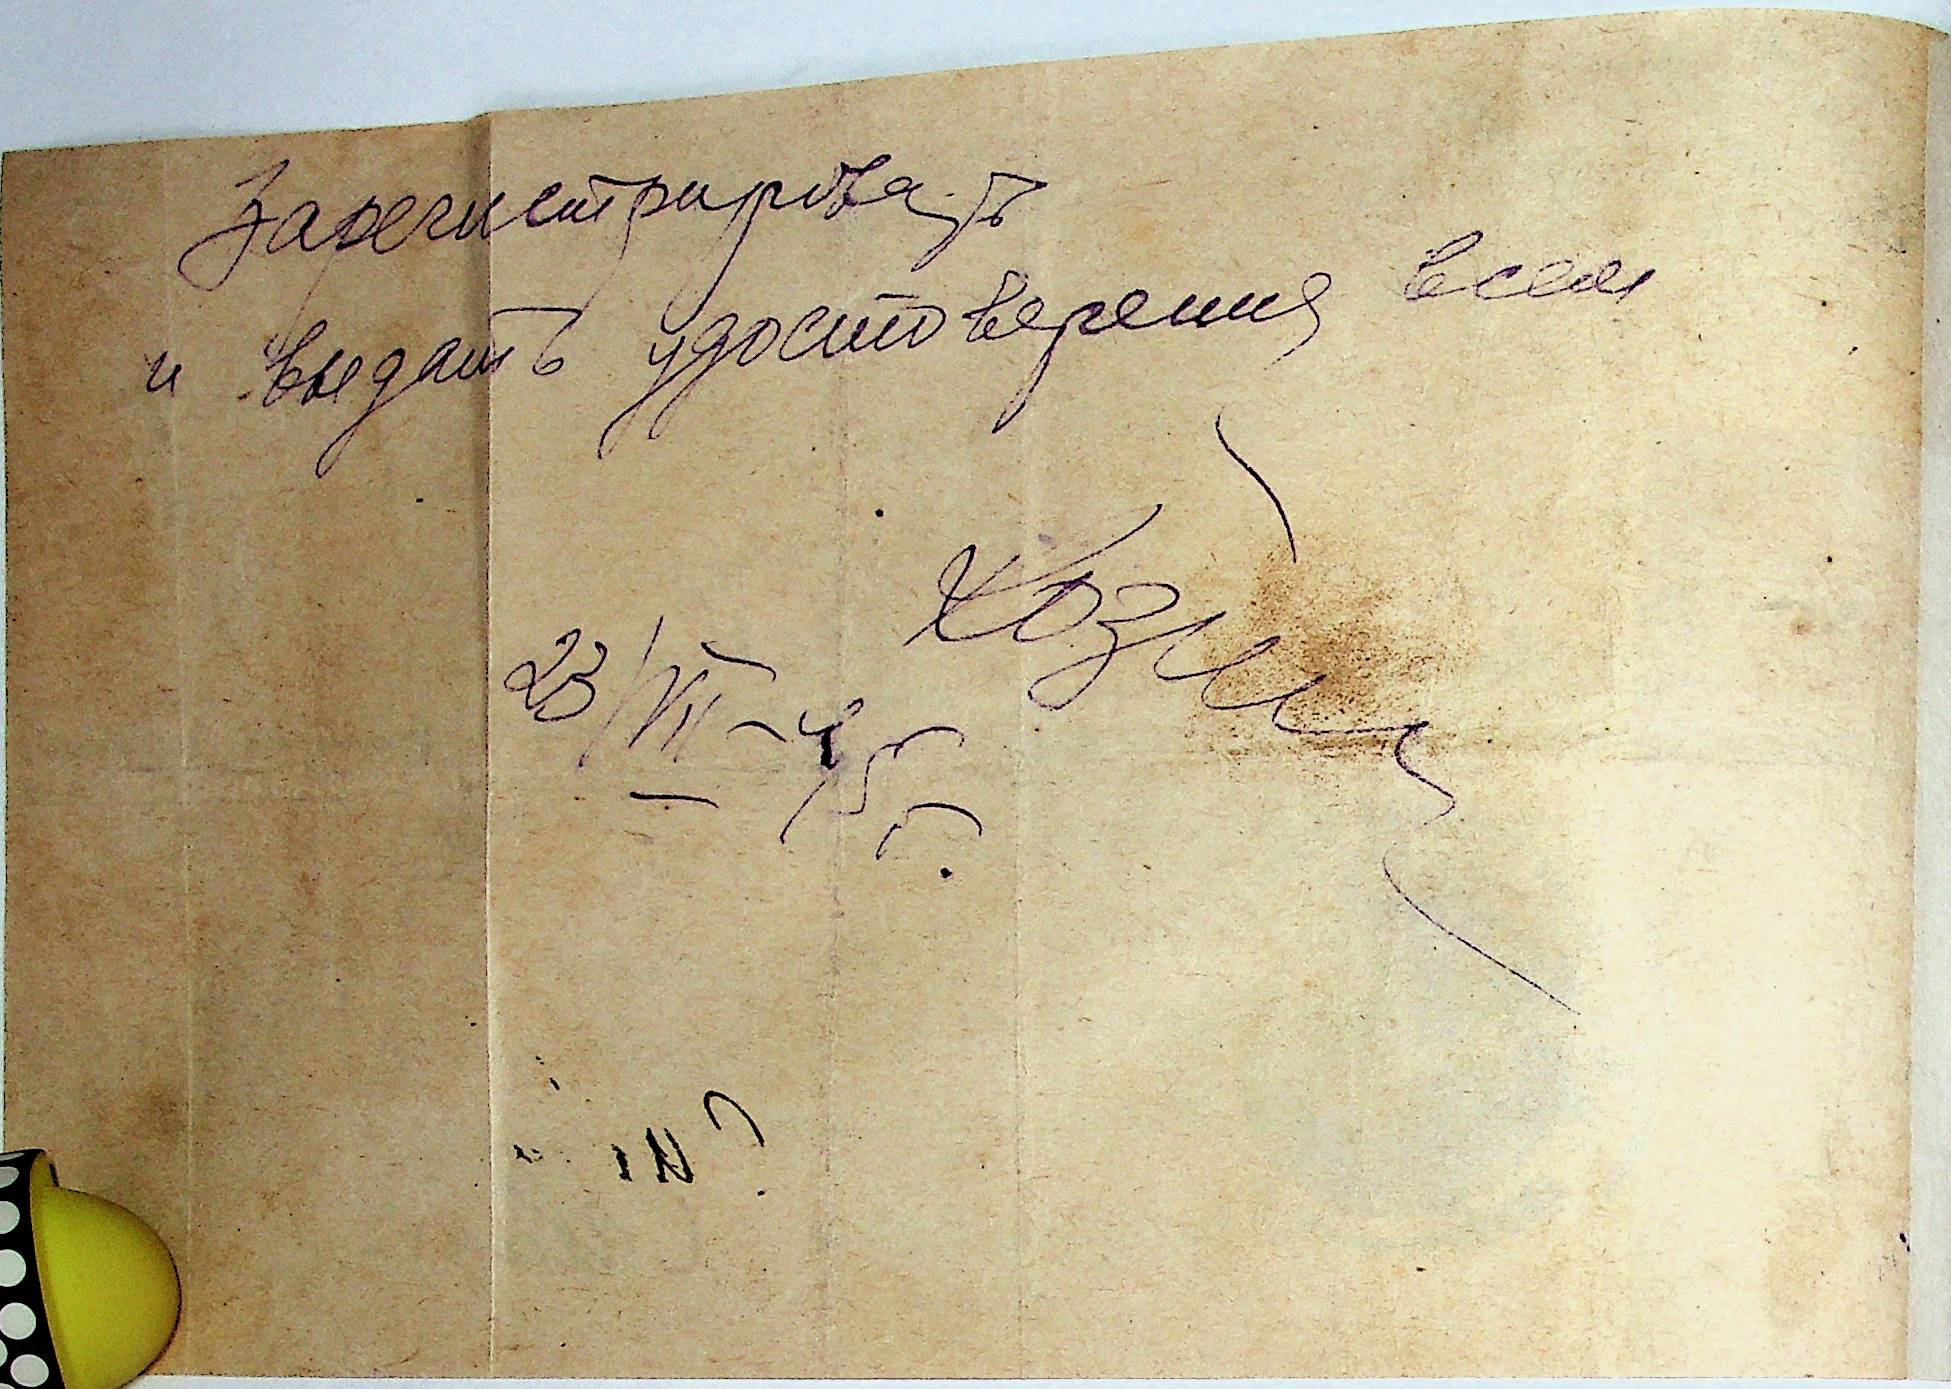 Зарегистрировать
и выдать удостоверения всем
Козин
23/VII-45 г.